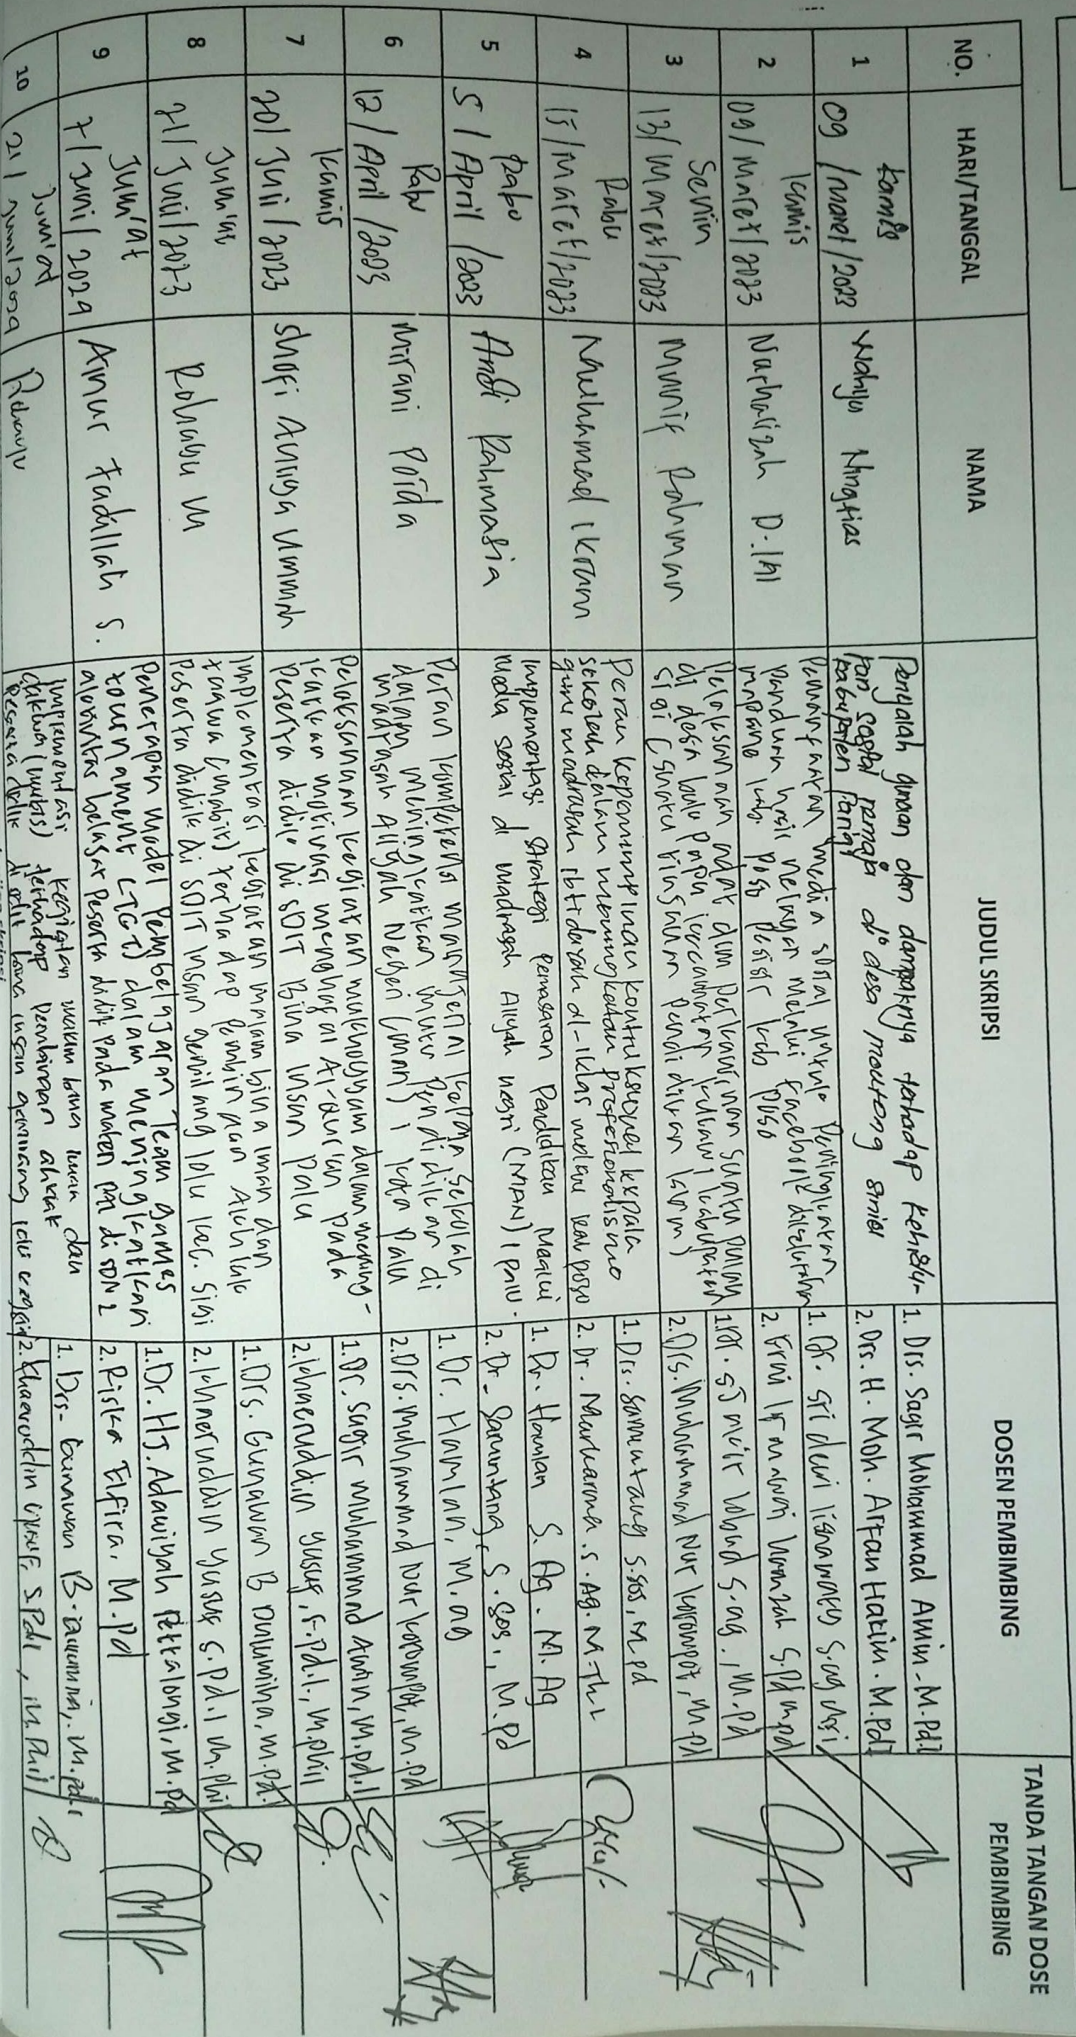 NO.
HARI/TANGGAL
NAMA
JUDUL SKRIPSI
DOSEN PEMBIMBING
TANDA TANGAN DOSE
PEMBIMBING
1
Kamis
09 /maret/2023
Wahyu Ningtias
Penyalah gunaan dan dampaknya terhadap kehidu-
pan sosial remaja di desa moutong
kabupaten Parigi
1. Drs. Sagir Mohammad Amin. M.Pd.I
2. Drs. H. Moh. Arfan Hakim. M.Pd.I
2
Kamis
09/Maret/2023
Nurhalizah D.
media sosial untuk Peningkatan
Pendapatan hasil nelayan melalui facebook
Poso Pesisir kab Poso
1. Dr. Sri dewi lisnawaty S.ag
2.
3
Senin
13/Maret/2023
Munif Rahman
Pelaksanaan adat dan Perkawinan suku
di desa bulu
Sigi (suatu tinjauan Pendidikan Islam)
1. Dr.
2. Drs. Muhammad Nur korompot, M.Pd
4
Rabu
15/Maret/2023
Muhammad Ikram
Peran kepemimpinan kepala
sekolah dalam meningkatkan Profesionalisme
guru madrasah ibtidaiyah al-Iklas
1. Drs. Samintang S.sos, M.pd
2. Dr. S.Ag. M.Th.I
5
Rabu
5 / April /2023
Andi Rahmasia
Implementasi Strategi Pemasaran Pendidikan Melalui
Media sosial di madrasah Aliyah negri (MAN) 1 Palu.
1. Dr. Hamlan S. Ag. M.Ag
2. Dr. Samintang, S.Sos., M.Pd
6
Rabu
12/ April /2023
Mirani Poida
Peran kompetensi manajerial kepala sekolah
dalam meningkatkan mutu Pendidikan di
madrasah Aliyah Negeri (man) 1 kota Palu
1. Dr. Hamlan, M.ag
2. Drs. Muhammad Nur korompot, M.Pd
7
Kamis
20/ Juli /2023
Shofi Auliya Ummah
Pelaksanaan kegiatan mukhoyyam dalam mening-
katkan motivasi menghafal Al-qur'an pada
Peserta didik di SDIT Bina Insan Palu
1. Dr. Sagir Muhammad Amin, M.pd.I
2. Khaeruddin yusuf, S.pd.I., M.phil
8
Jum'at
21/ Juli /2023
Rohabu M
Implementasi kegiatan malam bina iman dan
taqwa (mabit) terhadap Pembinaan Akhlak
Peserta didik di SDIT Insan gemilang lolu kec. Sigi
1. Drs. Gunawan B Dulumina, M.pd.I
2. Khaeruddin Yusuf S.Pd.I M.Phil
9
Jum'at
7/ Juni / 2024
Ainur Fadillah S.
Penerapan Model Pembelajaran Team games
tournament (TGT) dalam meningkatkan
aktivitas belajar Peserta didik pada materi PAI di SDN 2
1. Dr. Hj. Adawiyah Pettalongi, M.Pd
2. Riska Elfira, M.Pd
10
Jum'at
21 / Juni/2024
Rahayu
Implementasi kegiatan malam bina iman dan
takwa (mabit) terhadap Pembinaan akhlak
Peserta didik di sdit bina insan gemilang lolu
1. Drs. Gunawan B. Dulumina, M.Pd.I
2. Khaeruddin Yusuf, S.Pd.I, M.Phil